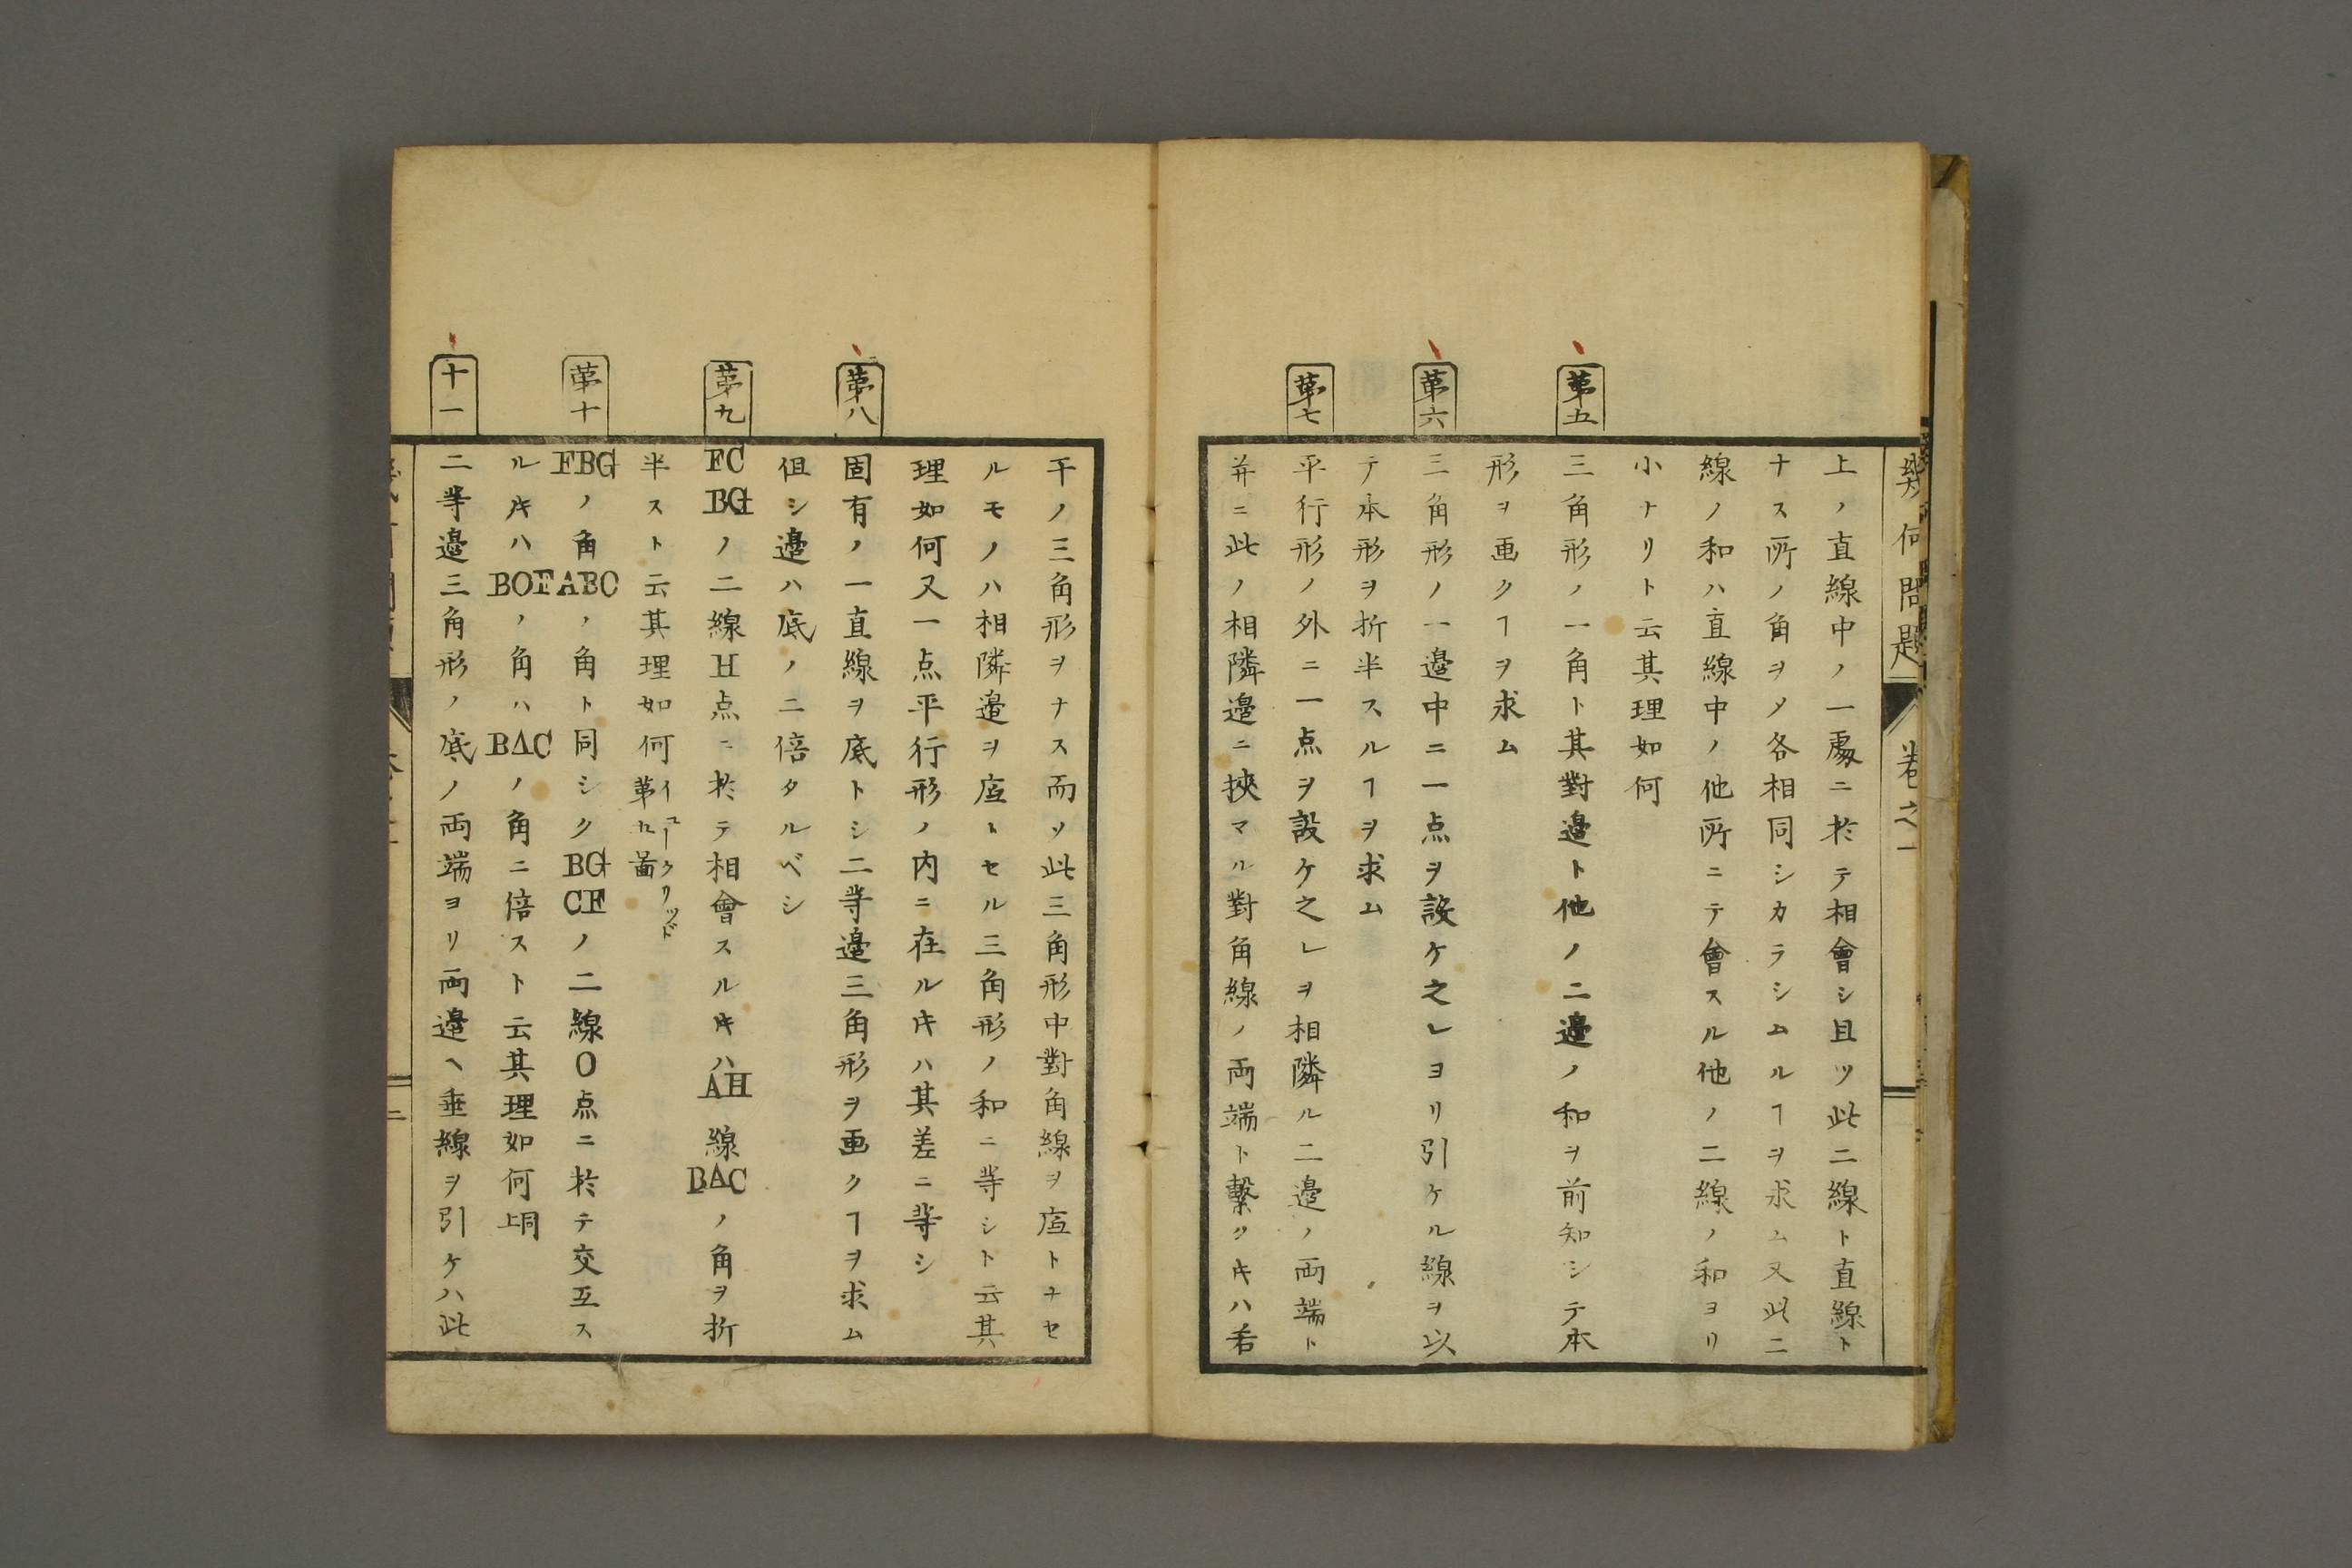 幾何問題 卷之一
上ノ直線中ノ一處ニ於テ相會シ且ツ此二線ト直線ト
ナス所ノ角ヲメ各相同シカラシムルヿヲ求ム又此二
線ノ和ハ直線中ノ他所ニテ會スル他ノ二線ノ和ヨリ
小ナリト云其理如何
第五
三角形ノ一角ト其對邉ト他ノ二邉ノ和ヲ前知シテ本
形ヲ画クヿヲ求ム
第六
三角形ノ一邉中ニ一点ヲ設ケ之レヨリ引ケル線ヲ以
テ本形ヲ折半スルヿヲ求ム
第七
平行形ノ外ニ一点ヲ設ケ之レヲ相隣ル二邉ノ両端ト
并ニ此ノ相隣邉ニ挾マル對角線ノ両端ト繫クキハ若
干ノ三角形ヲナス而ソ此三角形中對角線ヲ底トナセ
ルモノハ相隣邉ヲ底トセル三角形ノ和ニ等シト云其
理如何又一点平行形ノ内ニ在ルキハ其差ニ等シ
第八
固有ノ一直線ヲ底トシ二等邉三角形ヲ画クヿヲ求ム
但シ邉ハ底ノ二倍タルベシ
第九
FC BGノ二線H点ニ於テ相會スルキハAH線BACノ角ヲ折
半スト云其理如何イユークリッド第九啚
第十
FBGノ角ABCノ角ト同シクBG CFノ二線O点ニ於テ交互ス
ルキハBOFノ角ハBACノ角ニ倍スト云其理如何同上
十一
二等邉三角形ノ底ノ両端ヨリ両邉ヘ垂線ヲ引ケハ此
二